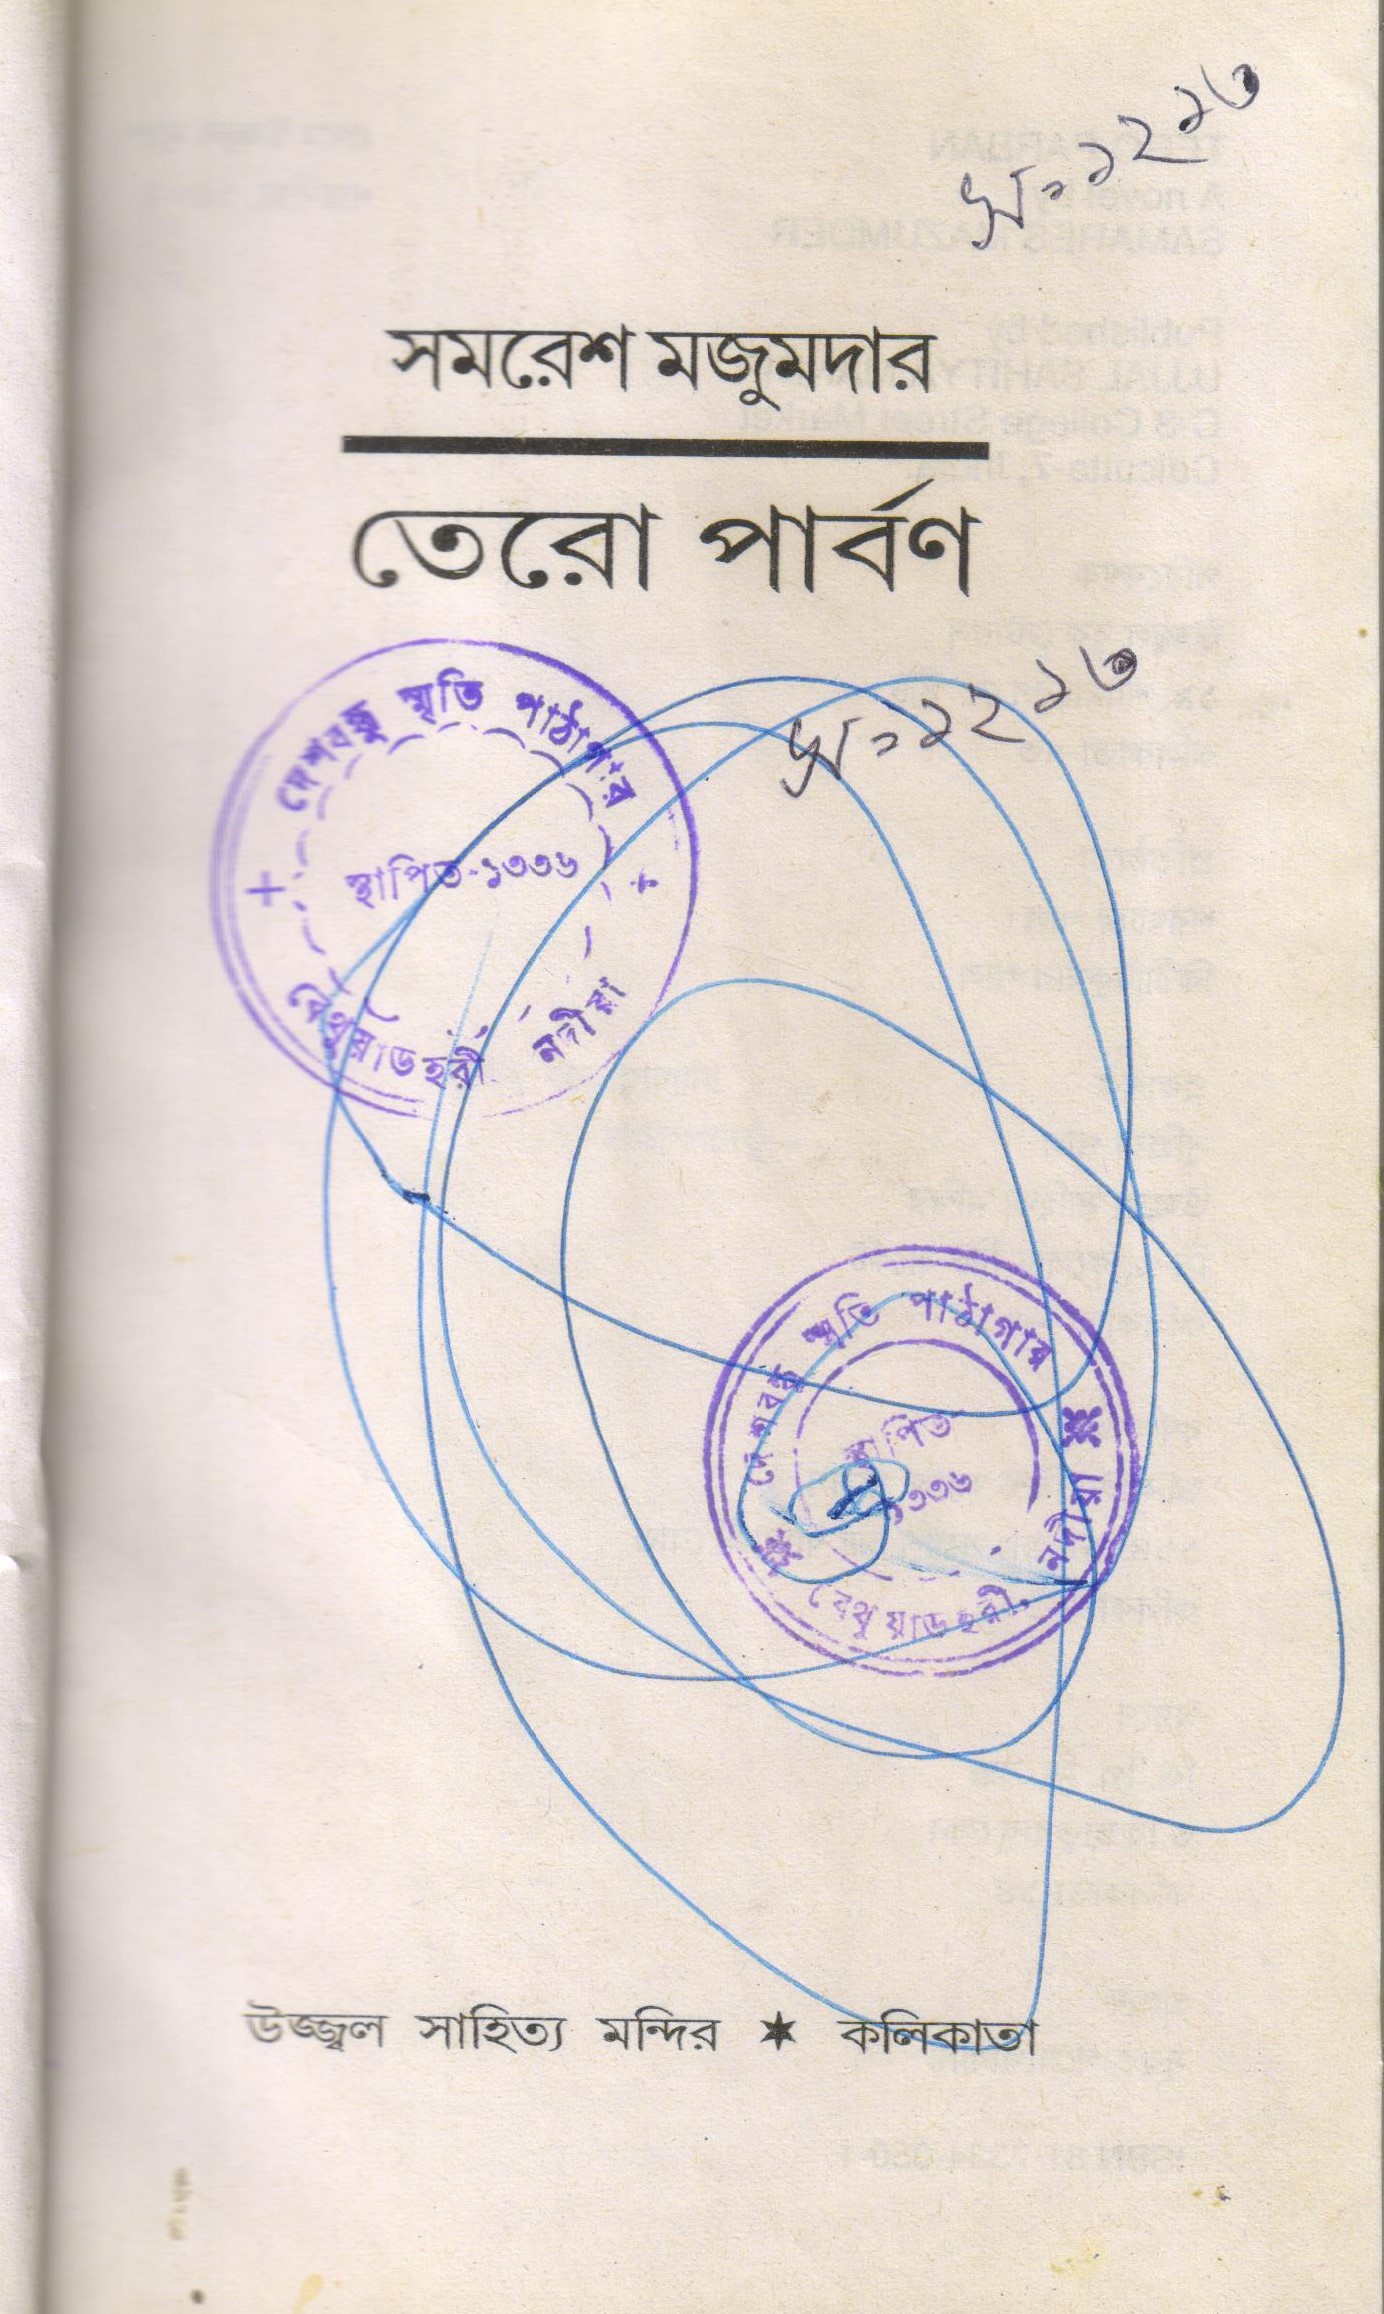 সমরেশ মজুমদার
তেরো পার্বণ
দেশবন্ধু স্মৃতি পাঠাগার
স্থাপিত-১৩৩৬
বেথুয়াডহরী নদীয়া
দেশবন্ধু স্মৃতি পাঠাগার
স্থাপিত
১৩৩৬
বেথুয়াডহরী, নদীয়া
উজ্জ্বল সাহিত্য মন্দির ★ কলিকাতা